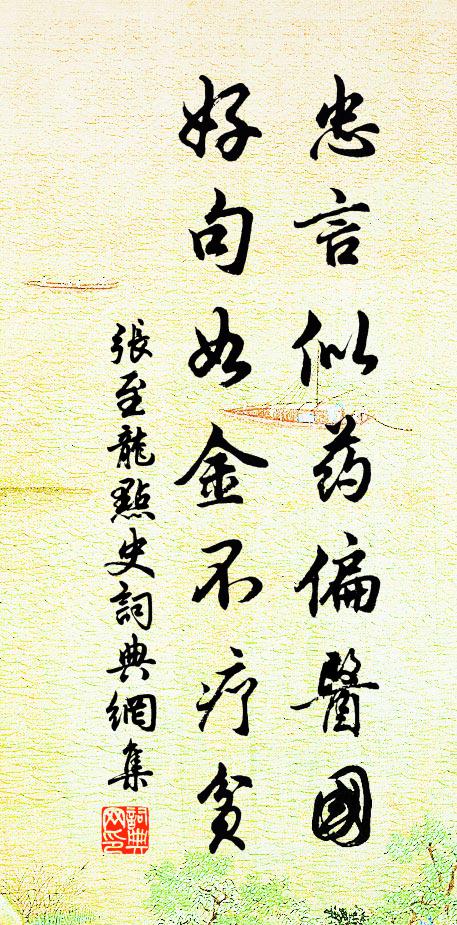 忠言似药偏醫國
好句如金不疗貧
張至龍點史詞典網集
詞典網印